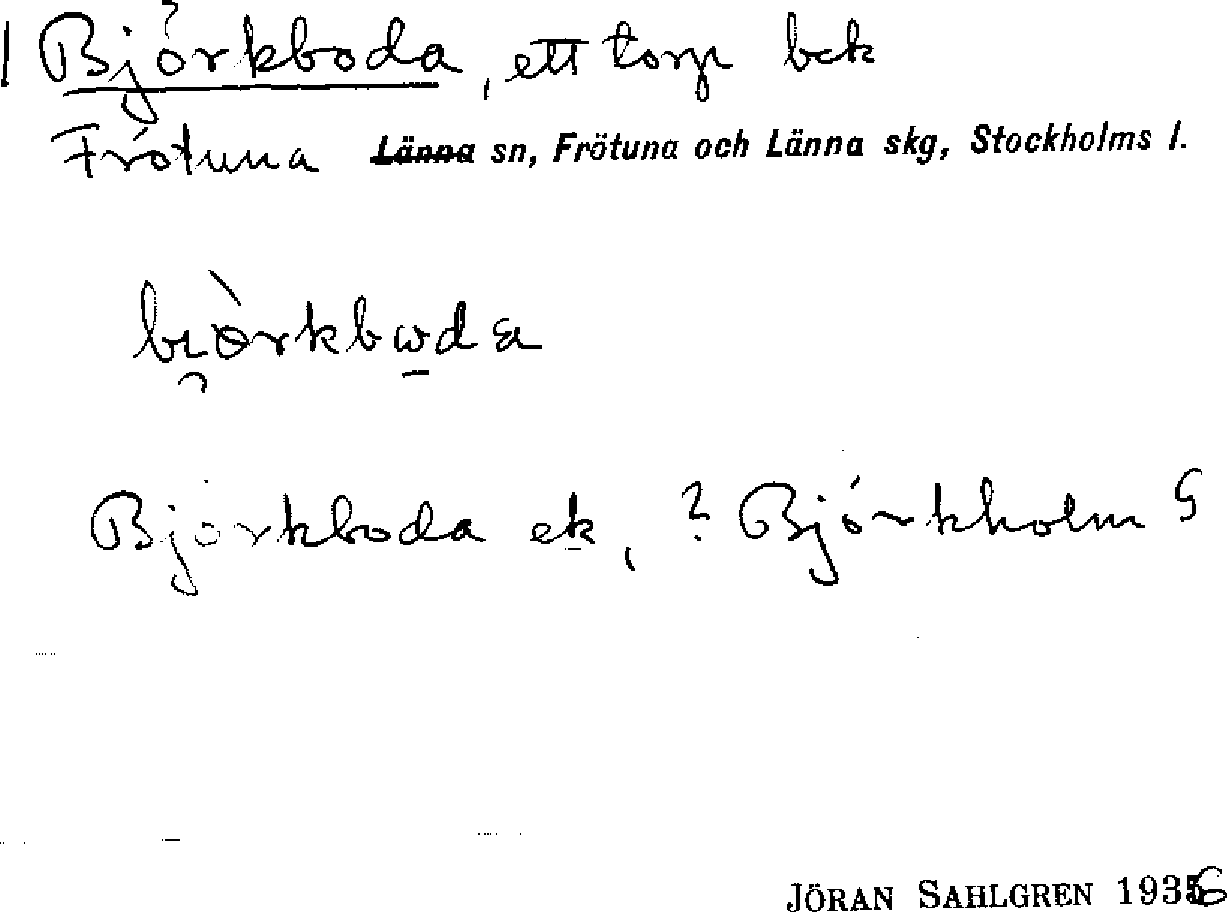 Björkboda, ett torp bek
Frötuna Länna sn, Frötuna och Länna skg, Stockholms l.
bi̯òrkbωda
Björkboda ek, ? Björkholm G
JÖRAN SAHLGREN 1936